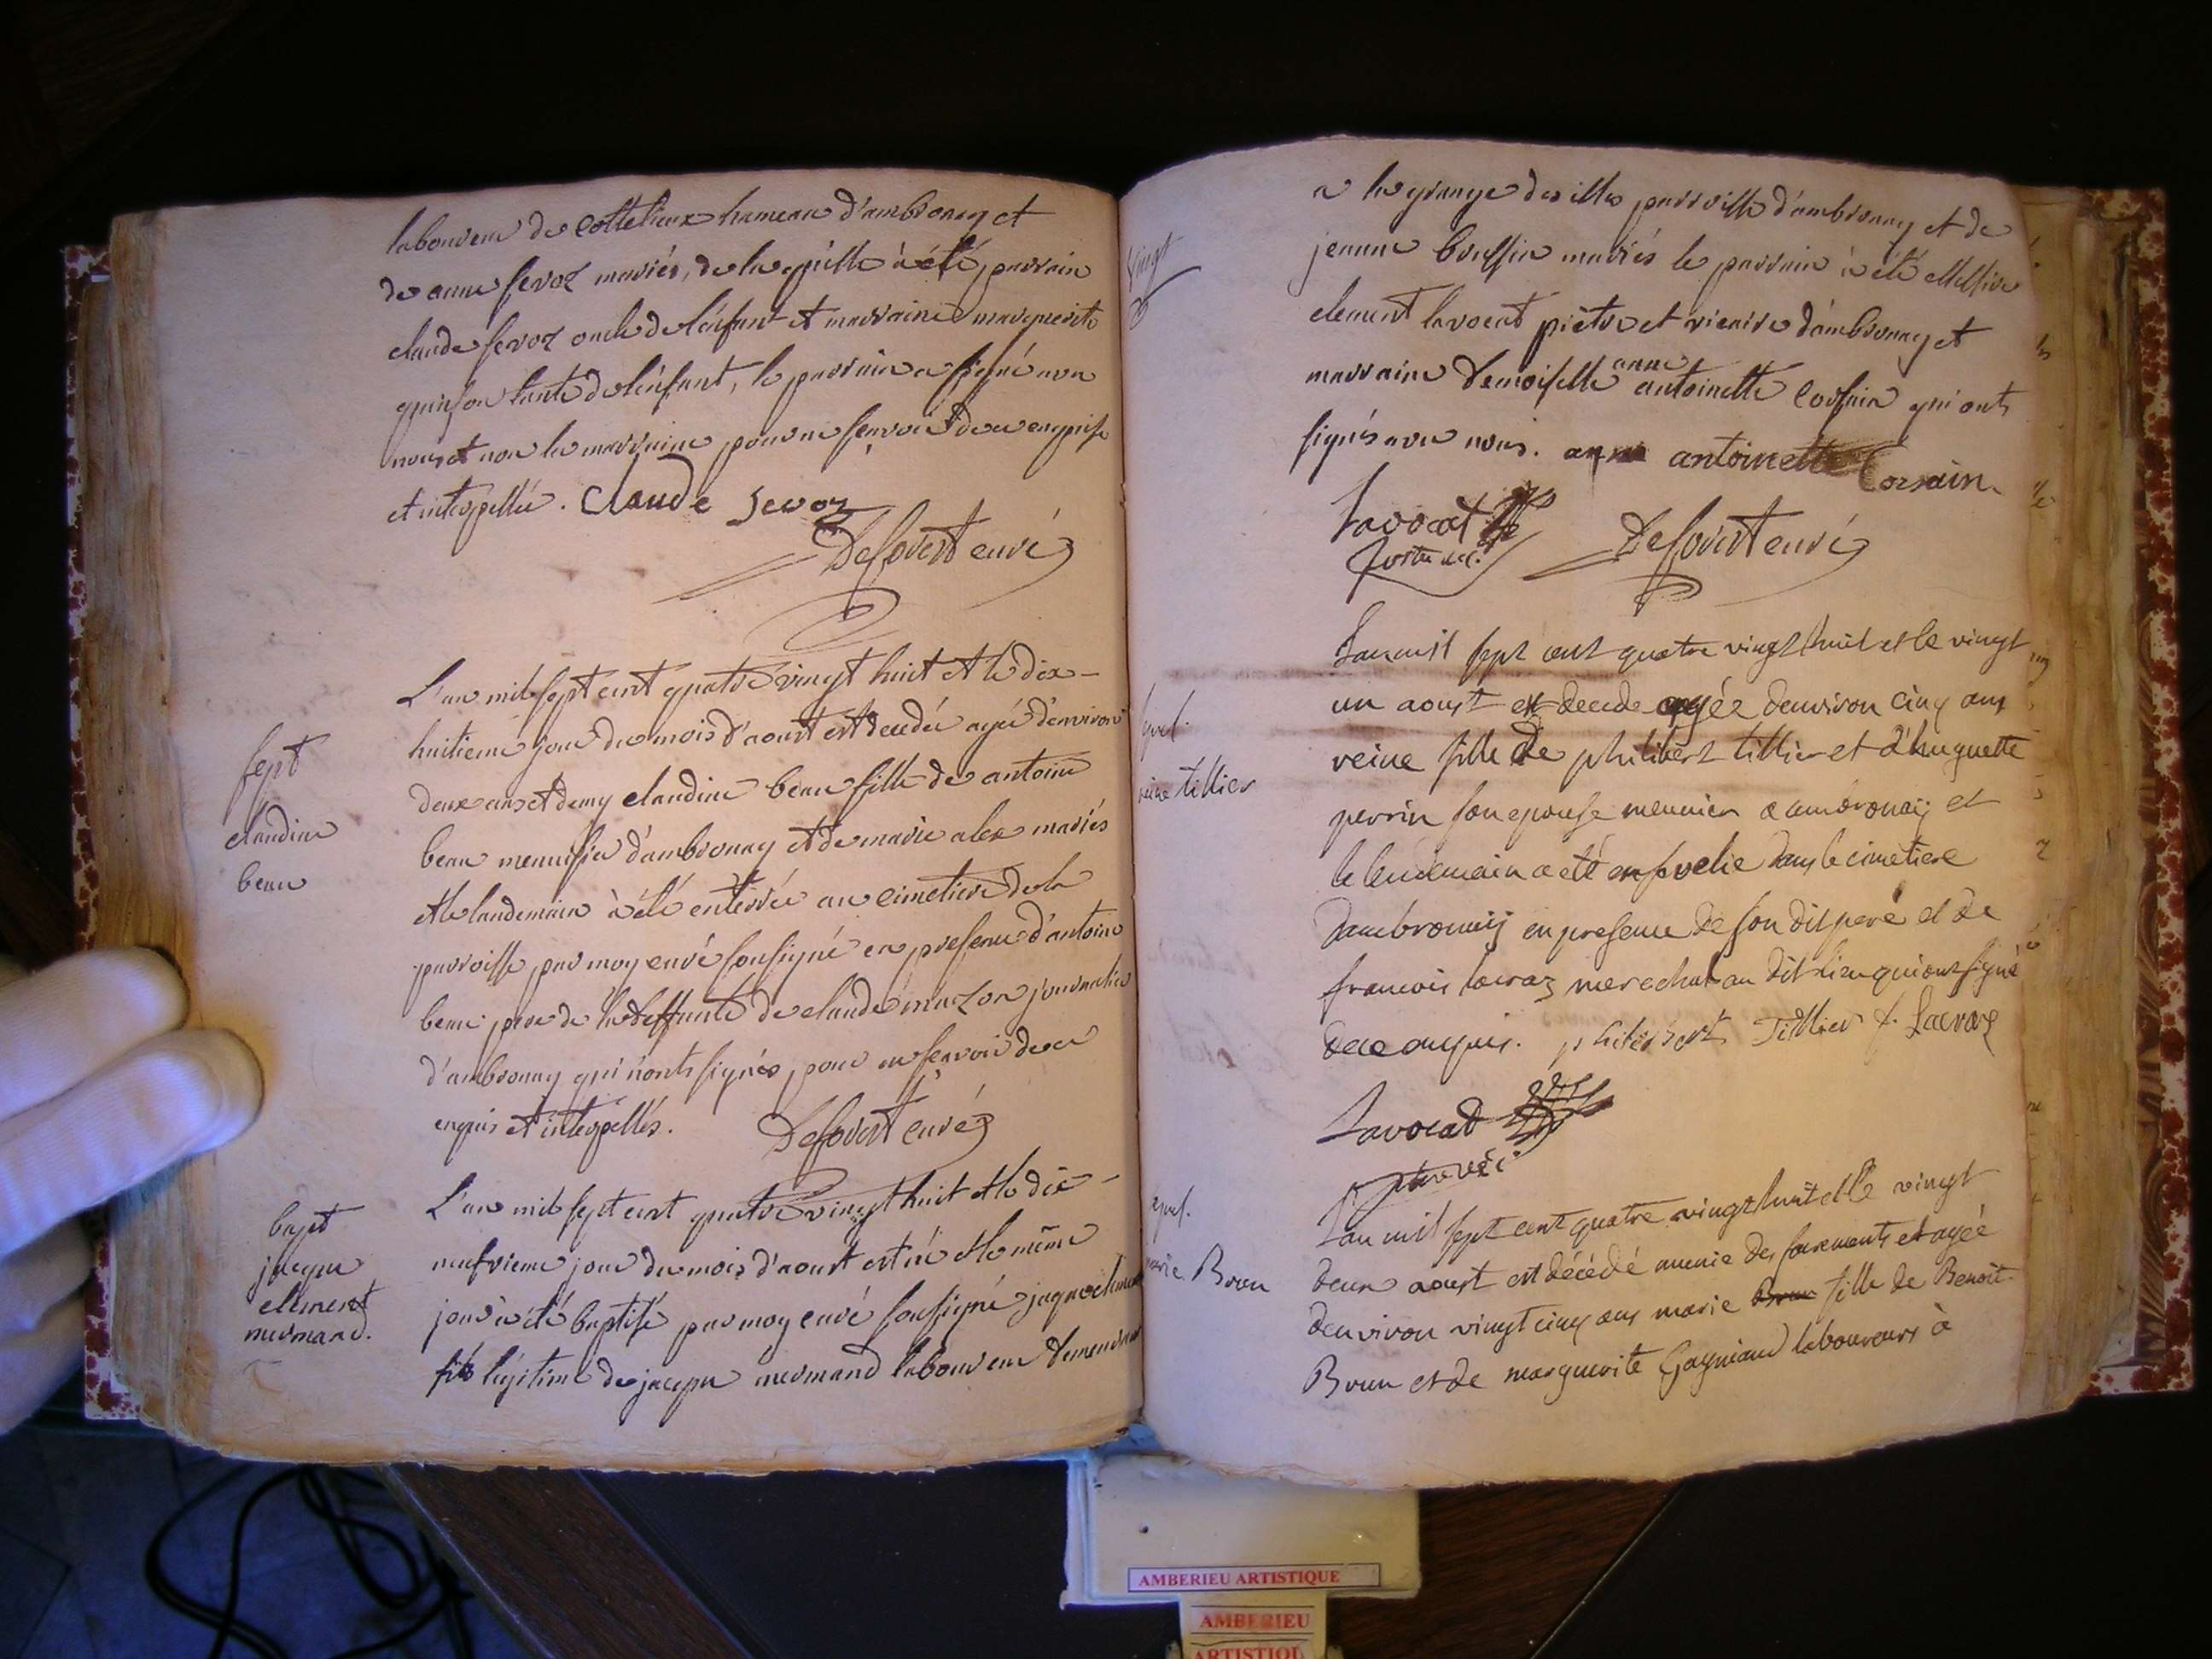 laboureur de cottelieux hameau d'ambronay et
de anne sevoz mariés, de laquelle à été parrain
claude sevoz oncle de l'enfant et marraine marguerite
quinson tante de l'enfant, le parrain a signé avec
nous et non la marraine pour ne sçavoir de ce enquise
et interpellée. Claude Sevoz
Desfovert curé
sept
claudine
beau
L'an mil sept cent quatre vingt huit et le dix-
huitieme jour du mois d'aoust est decedée agée d'environ
deux ans et demy claudine beau fille de antoine
beau menuisier d'ambronay et de marie alex mariés
et le landemain à été enterrée au cimetiere de la
parroisse par moy curé soussigné en presence d'antoine
beau pere de la deffunte de claude mazon journalier
d'ambronay qui n'ont signés pour ne sçavoir de ce
enquis et interpellés. Desfovert curé
bapt
jacque
clement
mermand.
L'an mil sept cent quatre vingt huit et le dix-
neufvieme jour du mois d'aoust est né et le même
jour à été baptisé par moy curé soussigné jaque clement
fils légitime de jacque mermand laboureur demeurant
vingt
a la grange des illes parroisse d'ambronay et de
jeanne mariés le parrain à été Messire
clement lavocat prêtre et vicaire d'ambronay et
marraine demoiselle anne antoinette Corsain qui ont
signés avec nous. anne antoinette Corsain
Lavocat
Desfovert curé
sepul.
reine tillier
Lan mil sept cent quatre vingt huit et le vingt
un aoust est decede agée denviron cinq ans
reine fille de philibert tillier et d'huguette
perrin son epouse meunier a ambronaij et
le lendemain a eté ensevelie dans le cimetiere
dambronaij en presence de son dit pere et de
francois lacraz marechal au dit lieu qui ont signé
de ce enquis. philibert Tillier f. Lacraz
Lavocat
sepul.
marie Brun
Lan mil sept cent quatre vingt huit et le vingt
deux aoust est décédé munie des sacrements et agée
denviron vingt cinq ans marie fille de Benoit
Brun et de marguerite Gagniaud laboureurs à
AMBERIEU ARTISTIQUE
AMBERIEU
ARTISTIQU